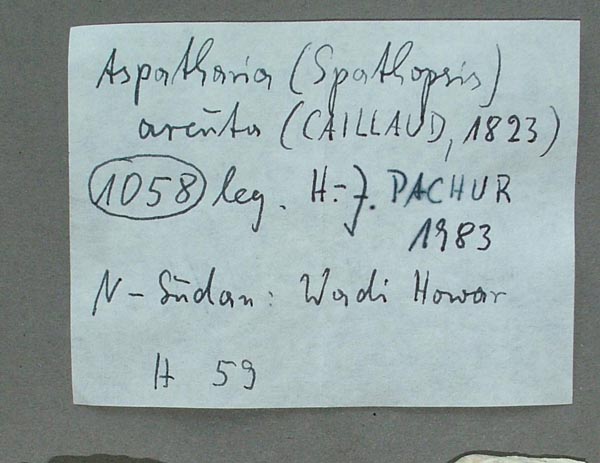 Aspatharia (Spathopsis)
arcuta (CAILLAUD, 1823)
1058 leg. H.-J. PACHUR
1983
N-Sūdan: Wadi Howar
H 59